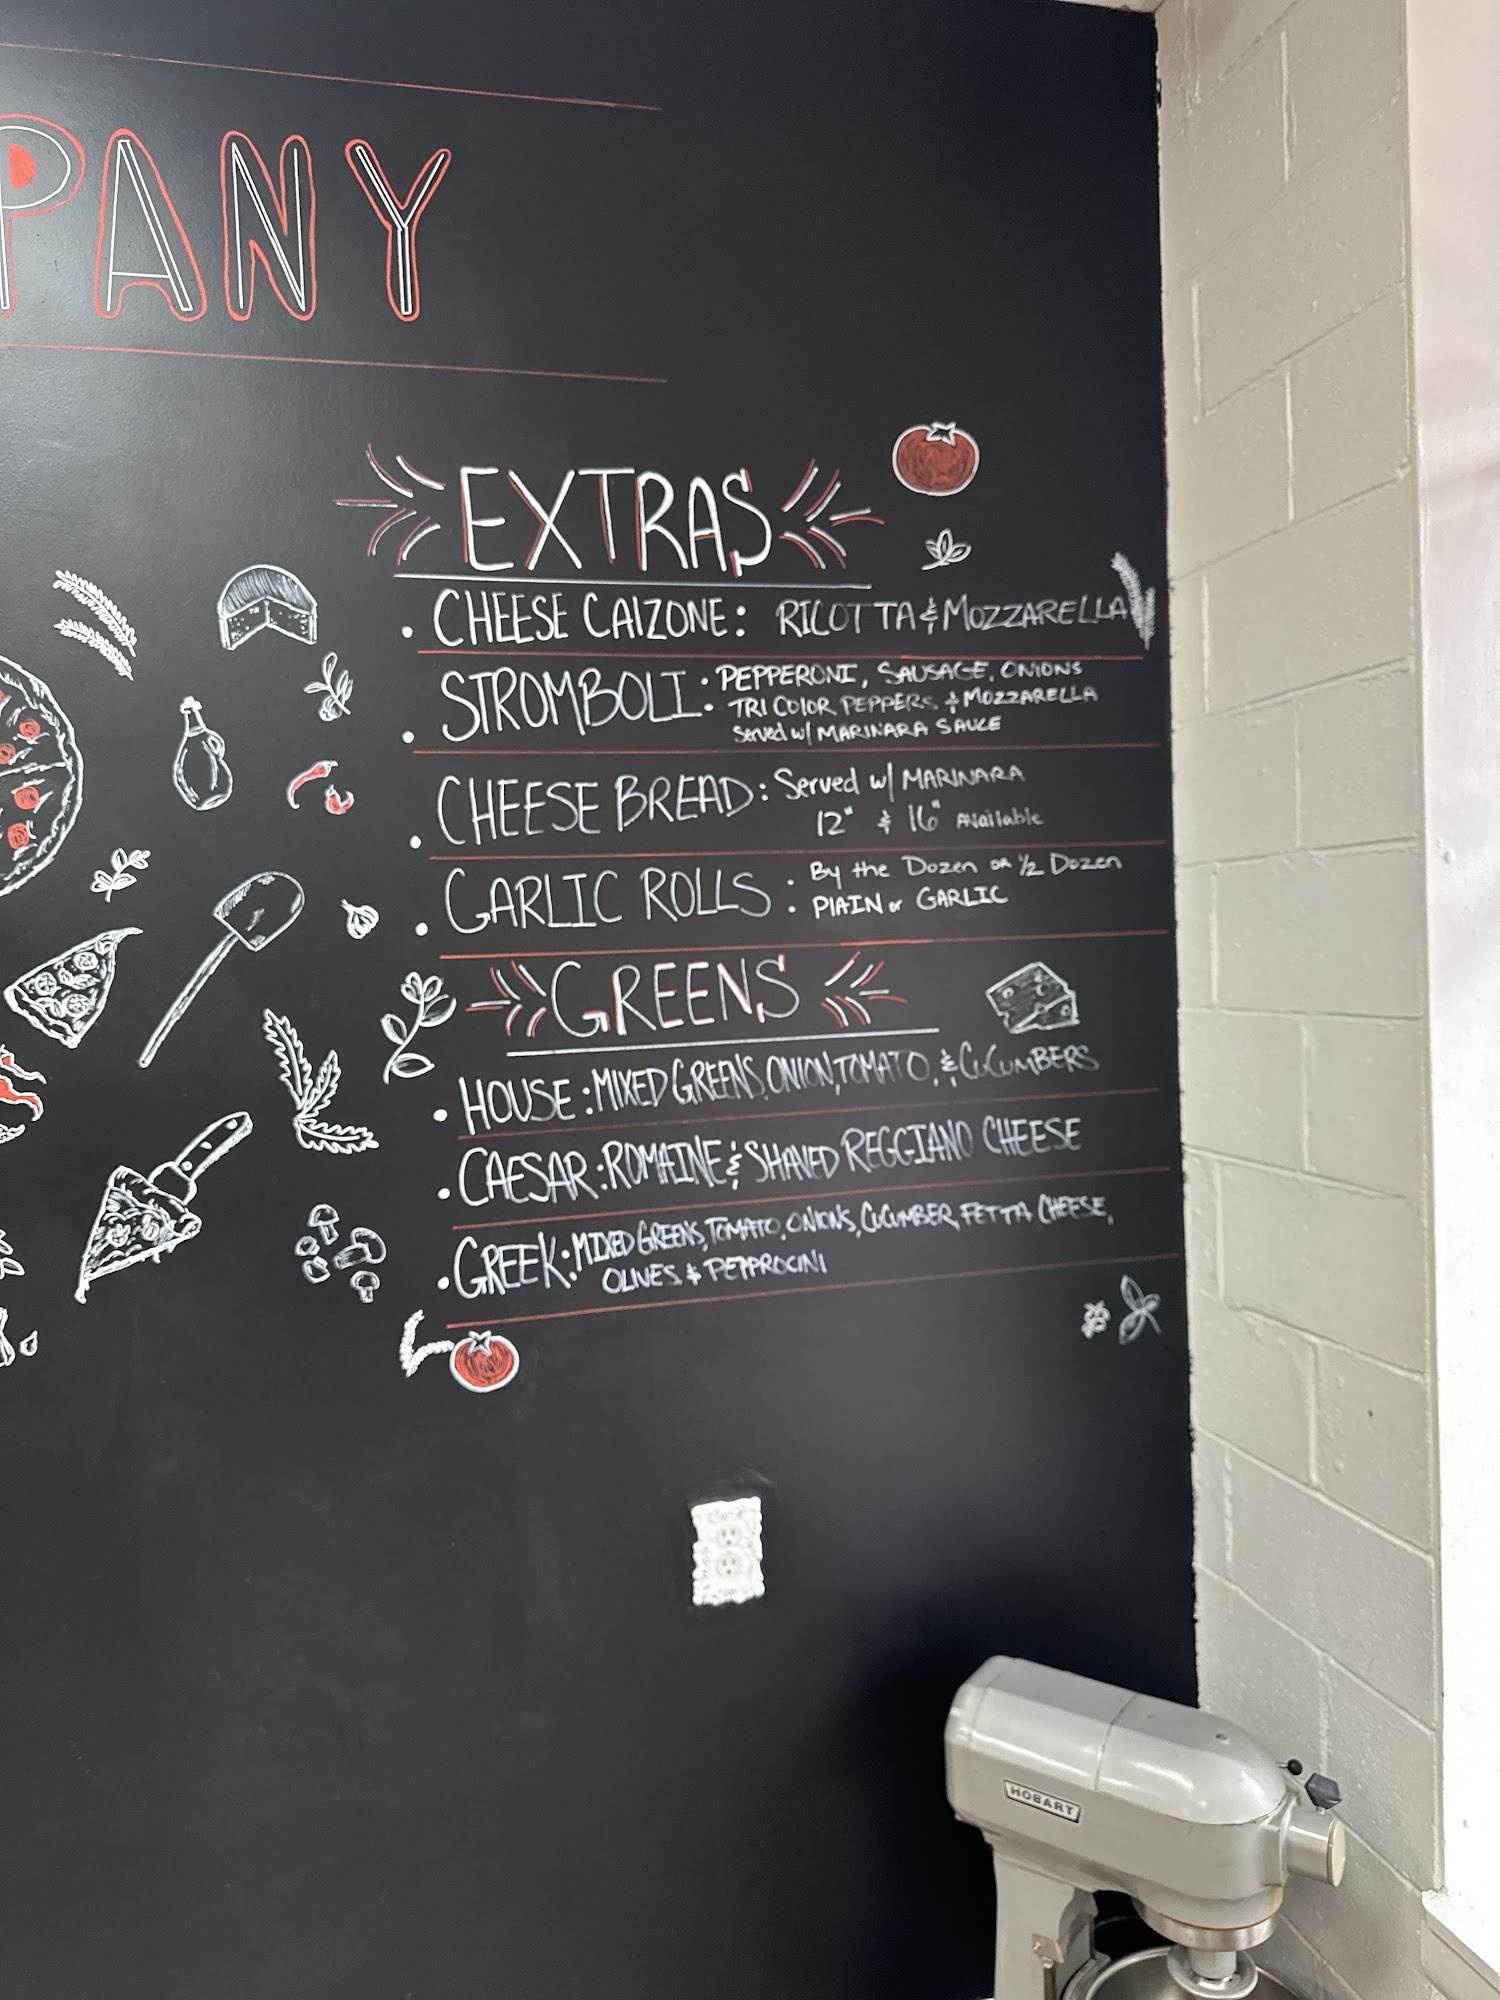 PANY
EXTRAS
• CHEESE CALZONE: RICOTTA & MOZZARELLA
• STROMBOLI: PEPPERONI, SAUSAGE, ONIONS
TRI COLOR PEPPERS & MOZZARELLA
Served w/ MARINARA SAUCE
• CHEESE BREAD: Served w/ MARINARA
12" & 16" Available
• GARLIC ROLLS: By the Dozen or 1/2 Dozen
PLAIN or GARLIC
GREENS
• HOUSE: MIXED GREENS, ONION, TOMATO, & CUCUMBERS
• CAESAR: ROMAINE & SHAVED REGGIANO CHEESE
• GREEK: MIXED GREENS, TOMATO, ONIONS, CUCUMBER, FETTA CHEESE,
OLIVES & PEPPROCINI
HOBART